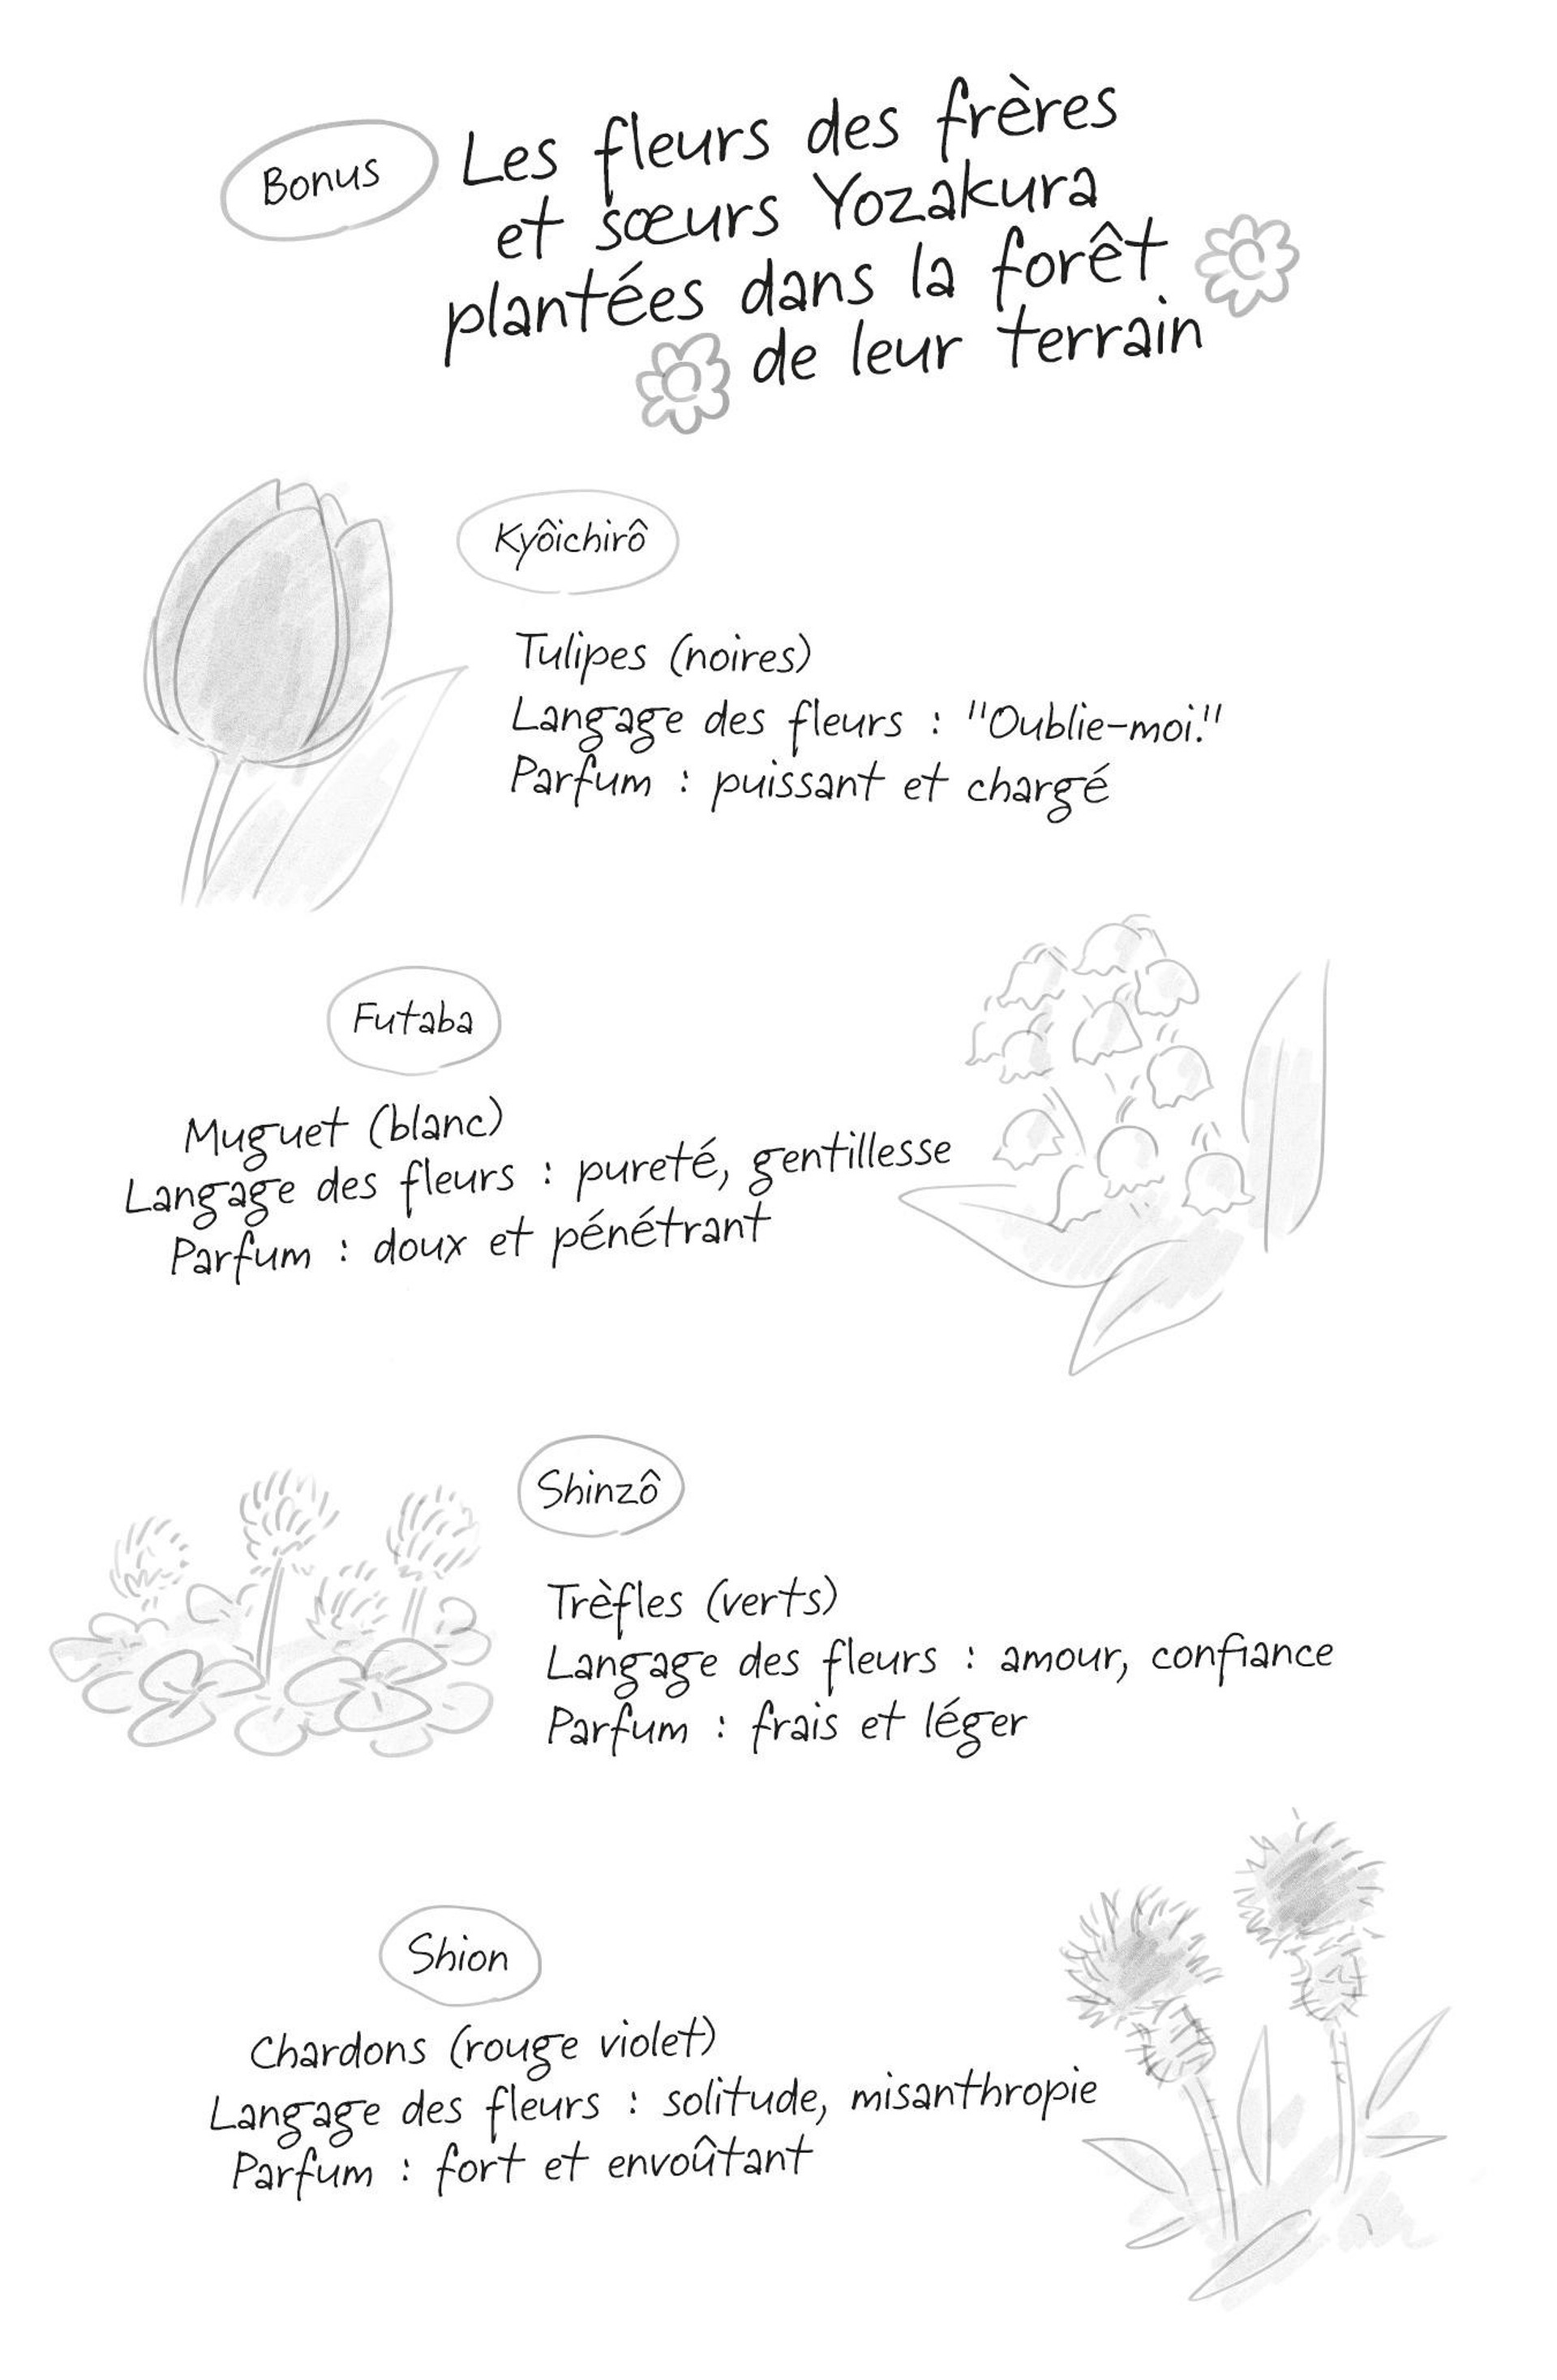 Bonus
Les fleurs des frères
et sœurs Yozakura
plantées dans la forêt
de leur terrain
Kyôichirô
Tulipes (noires)
Langage des fleurs : "Oublie-moi."
Parfum : puissant et chargé
Futaba
Muguet (blanc)
Langage des fleurs : pureté, gentillesse
Parfum : doux et pénétrant
Shinzô
Trèfles (verts)
Langage des fleurs : amour, confiance
Parfum : frais et léger
Shion
Chardons (rouge violet)
Langage des fleurs : solitude, misanthropie
Parfum : fort et envoûtant